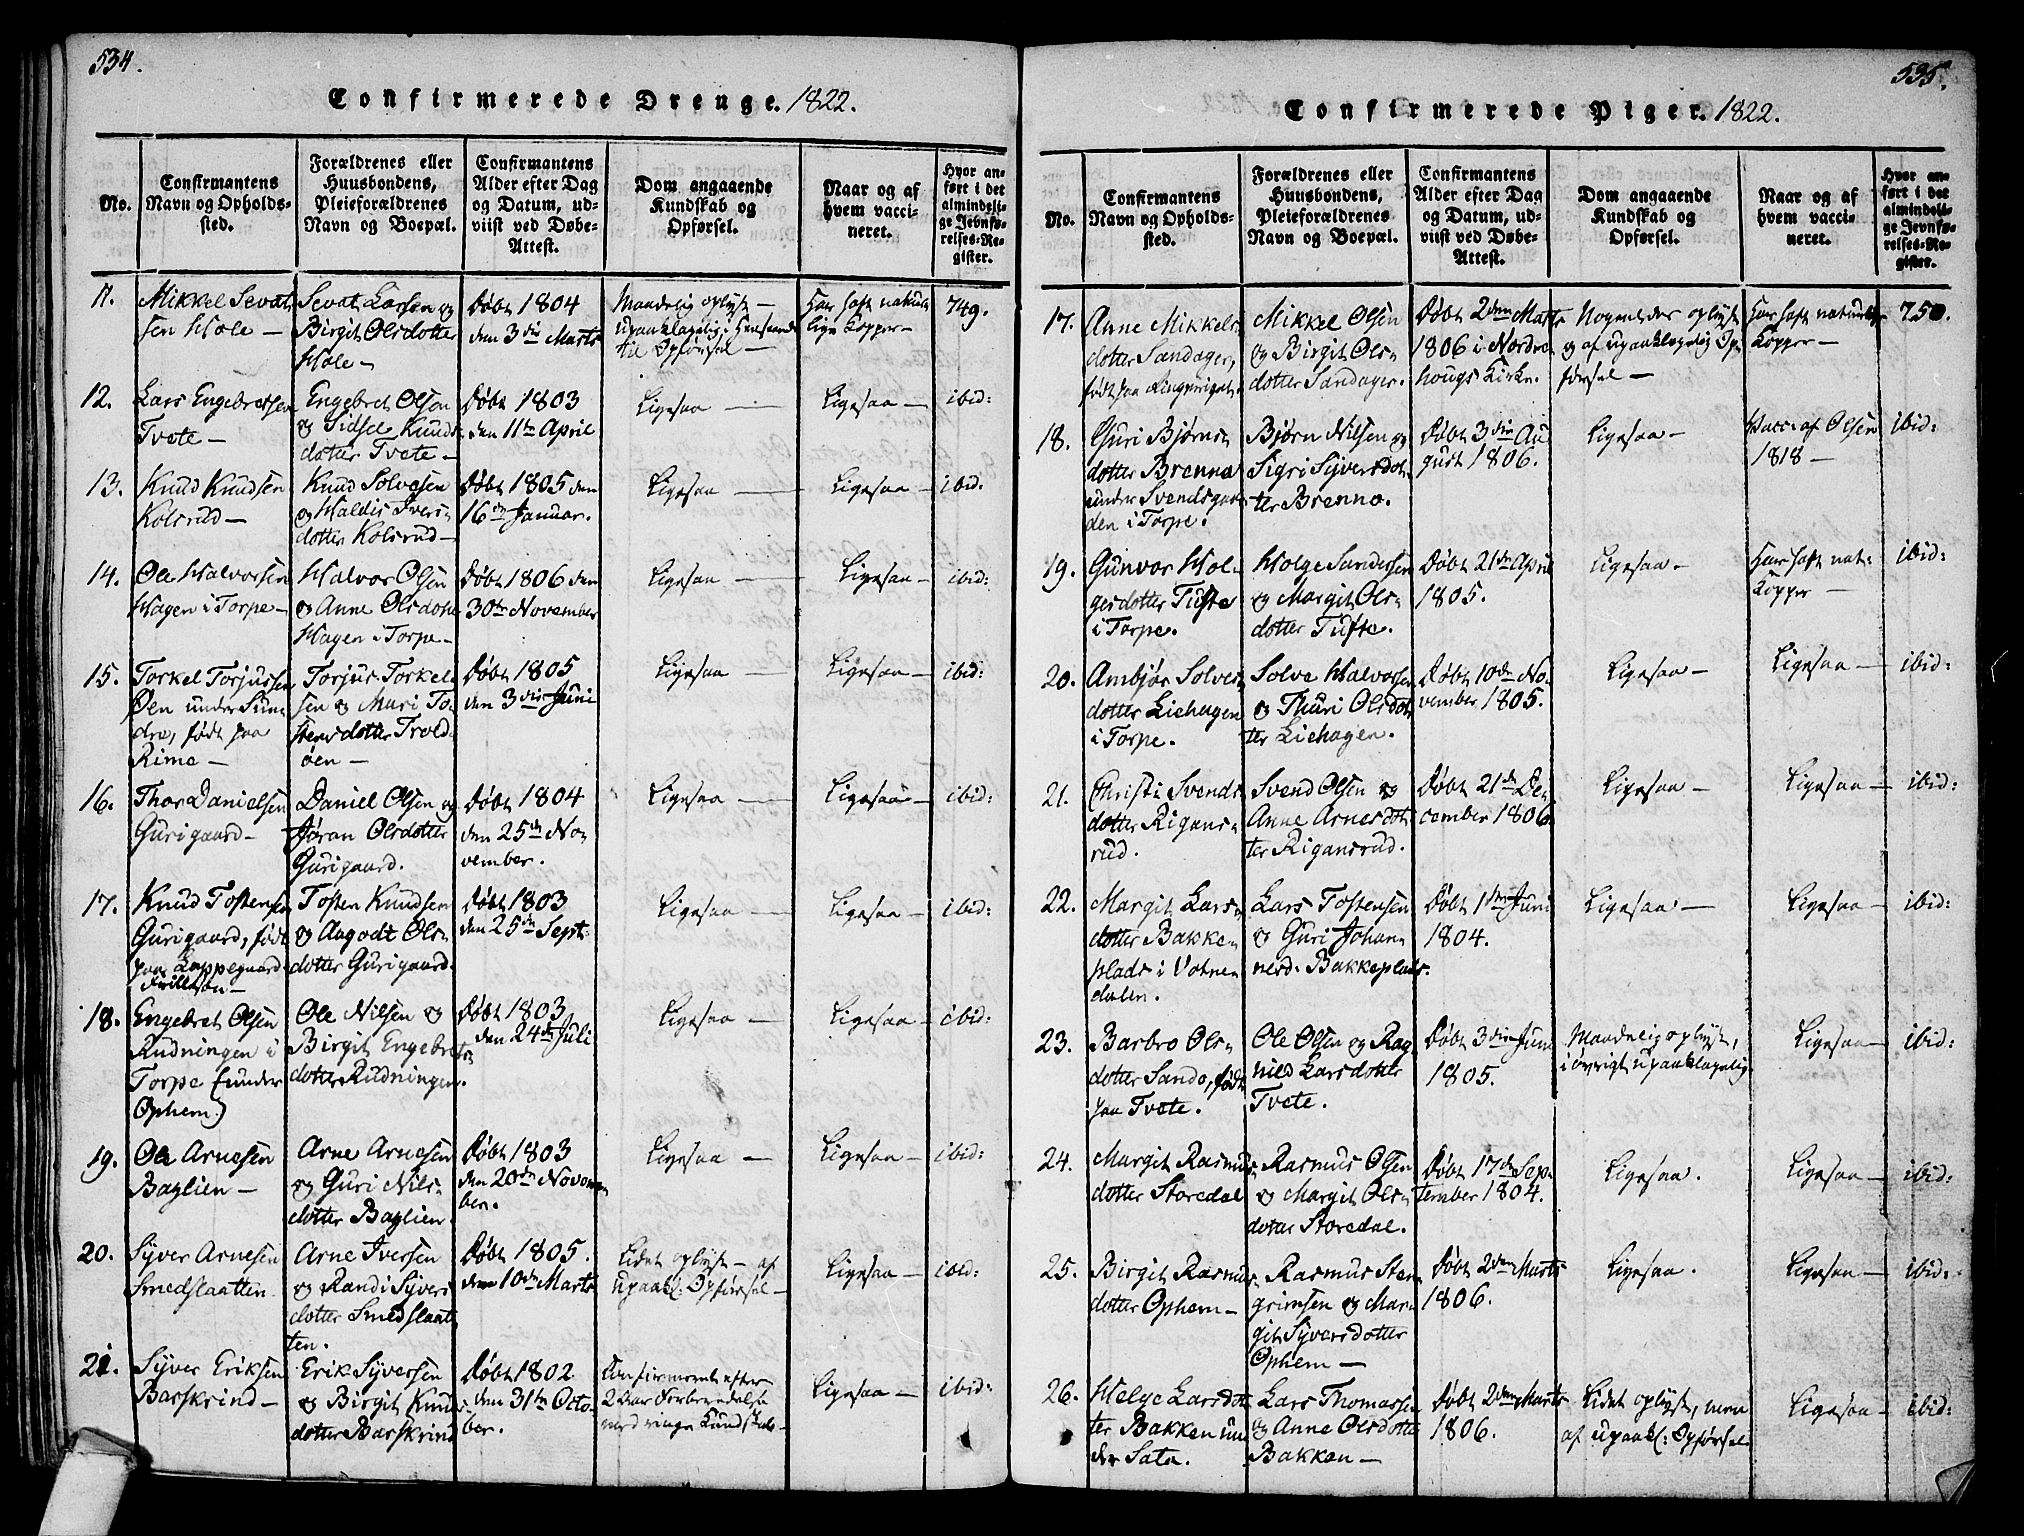 534.
Confirmerede Drenge. 1822.
No.
Confirmantens
Navn og Opholds-
sted.
Forældrenes eller
Huusbondens,
Pleieforældrenes
Navn og Boepæl.
Confirmantens
Alder efter Dag
og Datum, ud-
viist ved Døbe-
Attest.
Dom angaaende
Kundskab og
Opførsel.
Naar og af
hvem vacci-
neret.
Hvor an-
ført i det
almindeli-
ge Jevnfø-
relses-Re-
gister.
11.
Mikkel Sevat
sen Hole -
Sevat Larsen og
Birgit Olsdotter
Hole -
Døbt 1804
den 3die Marts
Maadelig oplyst -
upaaklagelig i Henseende
til Opførsel -
Har haft natur
lige Kopper -
749.
12.
Lars Engebretsen
Tvete -
Engebret Olsen
og Sidsel Knuds
dotter Tvete -
Døbt 1803
den 11te April
Ligesaa -
Ligesaa -
ibid:
13.
Knud Knudsen
Kolsrud -
Knud Solvesen
og Haldis Ivers
dotter Kolsrud -
Døbt 1805 den
16de Januar.
Ligesaa -
Ligesaa -
ibid.
14.
Ole Halvorsen
Hagen i Torpe -
Halvor Olsen
og Anne Olsdotter
Hagen i Torpe -
Døbt 1806 den
30te November
Ligesaa -
Ligesaa -
ibid:
15.
Torkel Torjussen
Øen under Sun
dre, født paa
Rime -
Torjus Torkel
sen og Mari To-
stensdotter Trold-
øen -
Døbt 1805
den 3die Juni
Ligesaa -
Ligesaa -
ibid:
16.
Thor Danielsen
Gurigaard -
Daniel Olsen og
Jøran Olsdotter
Gurigaard.
Døbt 1804
den 25de No-
vember.
Ligesaa -
Ligesaa -
ibid:
17.
Knud Tostensen
Gurigaard, født
paa Lappegaard
Frillesøn -
Tosten Knudsen
og Aagodt Ols-
dotter Gurigaard.
Døbt 1803
den 25de Sept:
Ligesaa -
Ligesaa -
ibid:
18.
Engebret Olsen
Rudningen i
Torpe (under
Ophem.)
Ole Nilsen og
Birgit Engebrets
dotter Rudningen.
Døbt 1803
den 24de Juli
Ligesaa -
Ligesaa -
ibid:
19.
Ole Arnesen
Baglien -
Arne Arnesen
og Guri Nils-
dotter Baglien.
Døbt 1803
den 20de Novem
ber.
Ligesaa -
Ligesaa -
ibid:
20.
Syver Arnesen
Smedslaatten
Arne Iversen
og Randi Syvers
dotter Smedslaat
ten.
Døbt 1805.
den 10de Marts
Lidet oplyst - af
upaakl: Opførsel -
Ligesaa -
ibid:
21.
Syver Eriksen
Barskrind -
Erik Syversen
og Birgit Knuds
dotter Barskrind
Døbt 1802.
den 31te Octo
ber.
Confirmeret efter
2 Aars Forberedelse
med ringe Kundskab -
Ligesaa -
ibid:
535.
Confirmerede Piger. 1822.
No.
Confirmantens
Navn og Opholds-
sted.
Forældrenes eller
Huusbondens,
Pleieforældrenes
Navn og Boepæl.
Confirmantens
Alder efter Dag
og Datum, ud-
viist ved Døbe-
Attest.
Dom angaaende
Kundskab og
Opførsel.
Naar og af
hvem vacci-
neret.
Hvor an-
ført i det
almindeli-
ge Jevnfø-
relses-Re-
gister.
17.
Anne Mikkels
dotter Sandager,
født paa Ringerigets
Mikkel Olsen
og Birgit Ols-
dotter Sandager.
Døbt 2den Marts
1806 i Nordre
hougs Kirke.
Nogenledes oplyst
og af upaaklagelig Op
førsel -
Har haft naturlige
Kopper -
750.
18.
Guri Bjørns
dotter Brenno
under Svendsgaar
den i Torpe.
Bjørn Nilsen og
Sigri Syversdot
ter Brenno.
Døbt 3die Au
gust 1806.
Ligesaa -
Vacc: af Olsen
1818 -
ibid:
19.
Gunvor Hol-
gesdotter Tufte
i Torpe.
Holge Sandersen
og Margit Ols-
dotter Tufte.
Døbt 21de April
1805.
Ligesaa -
Har haft nat:
Kopper -
ibid:
20.
Ambjør Solves
dotter Liehagen
i Torpe.
Solve Halvorsen
og Thuri Olsdot
ter Liehagen.
Døbt 10de No-
vember 1805.
Ligesaa -
Ligesaa -
ibid:
21.
Christi Svends
dotter Rigans-
rud.
Svend Olsen og
Anne Arnesdot
ter Rigansrud.
Døbt 21de De-
cember 1806.
Ligesaa -
Ligesaa -
ibid:
22.
Margit Lars-
dotter Bakke-
plads i Votne-
dalen.
Lars Tostensen
og Guri Johan-
nesd: Bakkeplads.
Døbt 1ste Juni
1804.
Ligesaa -
Ligesaa -
ibid:
23.
Barbro Ols-
dotter Sando, født
paa Tvete.
Ole Olsen og Rag
nild Larsdotter
Tvete.
Døbt 3die Juni
1805.
Maadelig oplyst,
i øvrigt upaaklagelig
Ligesaa -
ibid:
24.
Margit Rasmus
dotter Storedal
Rasmus Olsen
og Margit Ols-
dotter Storedal.
Døbt 17de Sep-
tember 1804.
Ligesaa.
Ligesaa -
ibid:
25.
Birgit Rasmus
dotter Ophem -
Rasmus Sten
grimsen og Mar-
git Syversdotter
Ophem -
Døbt 2den Marts
1806.
Ligesaa.
Ligesaa -
ibid:
26.
Helge Larsdot
ter Bakken un
der Sata.
Lars Thomassen
og Anne Olsdotter
Bakken -
Døbt 2den Marts
1806.
Lidet oplyst, men
af upaakl: Opførsel
Ligesaa -
ibid: